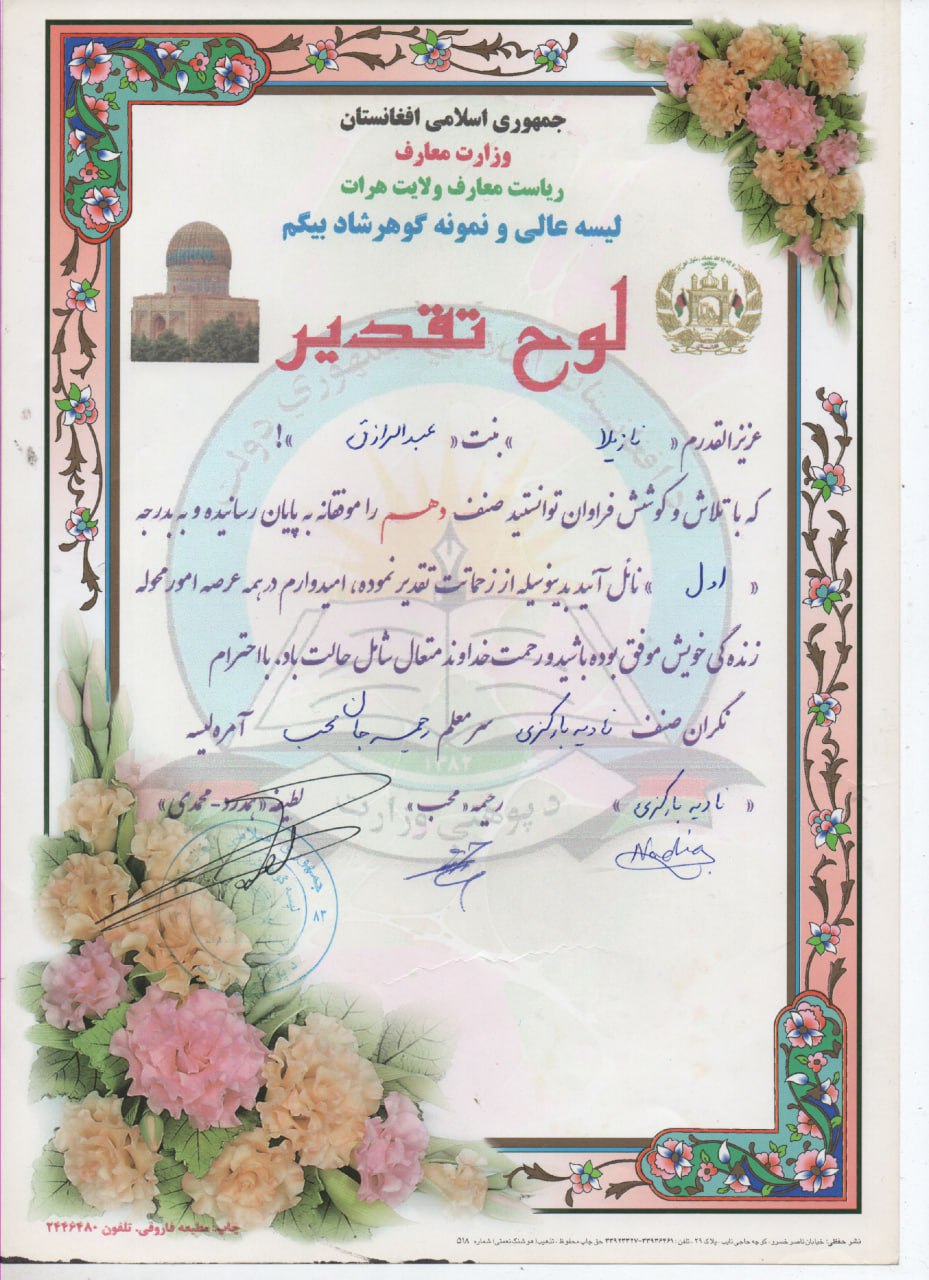 جمهوری اسلامی افغانستان
وزارت معارف
ریاست معارف ولایت هرات
لیسه عالی و نمونه گوهرشاد بیگم
لوح تقدیر
عزیزالقدرم « نازیلا » بنت « عبدالرازق » !
که با تلاش و کوشش فراوان توانستید صنف دهم را موفقانه به پایان رسانیده و به درجه
« اول » نائل آیید بدینوسیله از زحماتت تقدیر نموده، امیدوارم در همه عرصه امور محوله
زنده گی خویش موفق بوده باشید و رحمت خداوند متعال شامل حالت باد. با احترام
نگران صنف نادیه بارکزی سر معلم رحیمه جان محب آمره لیسه
« نادیه بارکزی » رحیمه « محب » لطیفه « همدرد - محمدی »
Nadia
۸۲
۱۳۸۲
د پوهنې وزارت
چاپ: مطبعه فاروقی، تلفون ۲۴۴۶۴۸۰
نشر حفظی: خیابان ناصر خسرو . کوچه حاجی نایب . پلاک ۲۹ . تلفن: ۳۳۹۳۶۴۶۱-۳۳۹۲۳۳۲۷ حق چاپ محفوظ . تذهیب (هوشنگ نعمتی) شماره ۵۱۸